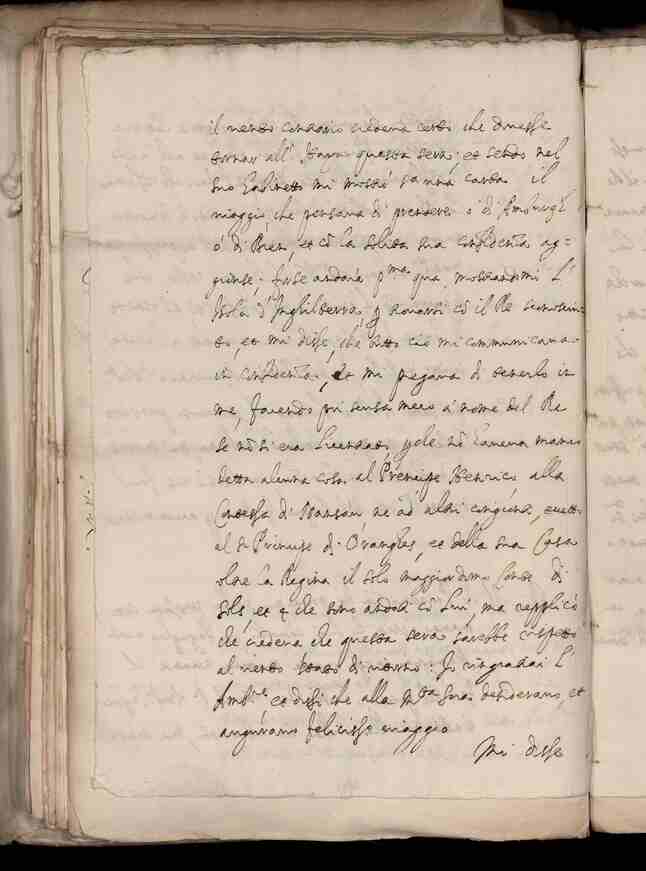 il vento contrario credeva certo che dovesse
tornar all' Haya questa sera; et sendo nel
suo Gabinetto mi mostrò s.ª una carta il
viaggio, che pensava di prendere ò di Amburgh
ò di Brem, et cõ la solita sua confidenza ag=
giunse; forse andarà p.ma qua, mostrandomi l'
Isola d'Inghilterra, p trovarsi cõ il Re
et mi disse, che tutto ciò mi communicava
in confidenza, et mi pregava di tenerlo in
me, facendo poi scusa meco à nome del Re
se nõ si era licentiato, p che nõ haveva manco
detto alcuna cosa al Prencipe Henrico alla
Contessa di Nansau ne ad altri congionti, eccetto
al S.r Principe di Oranges, et della sua Casa
oltre la Regina il solo maggiordomo Conte di
Sols, et q che sono andati cõ lui, ma repplicò
che credeva che questa sera sarebbe
al vento di ritorno: Io ringratiai l'
Amb.re et dissi che alla M.tà sua desideravo, et
auguravo felicisso viaggio
Mi disse